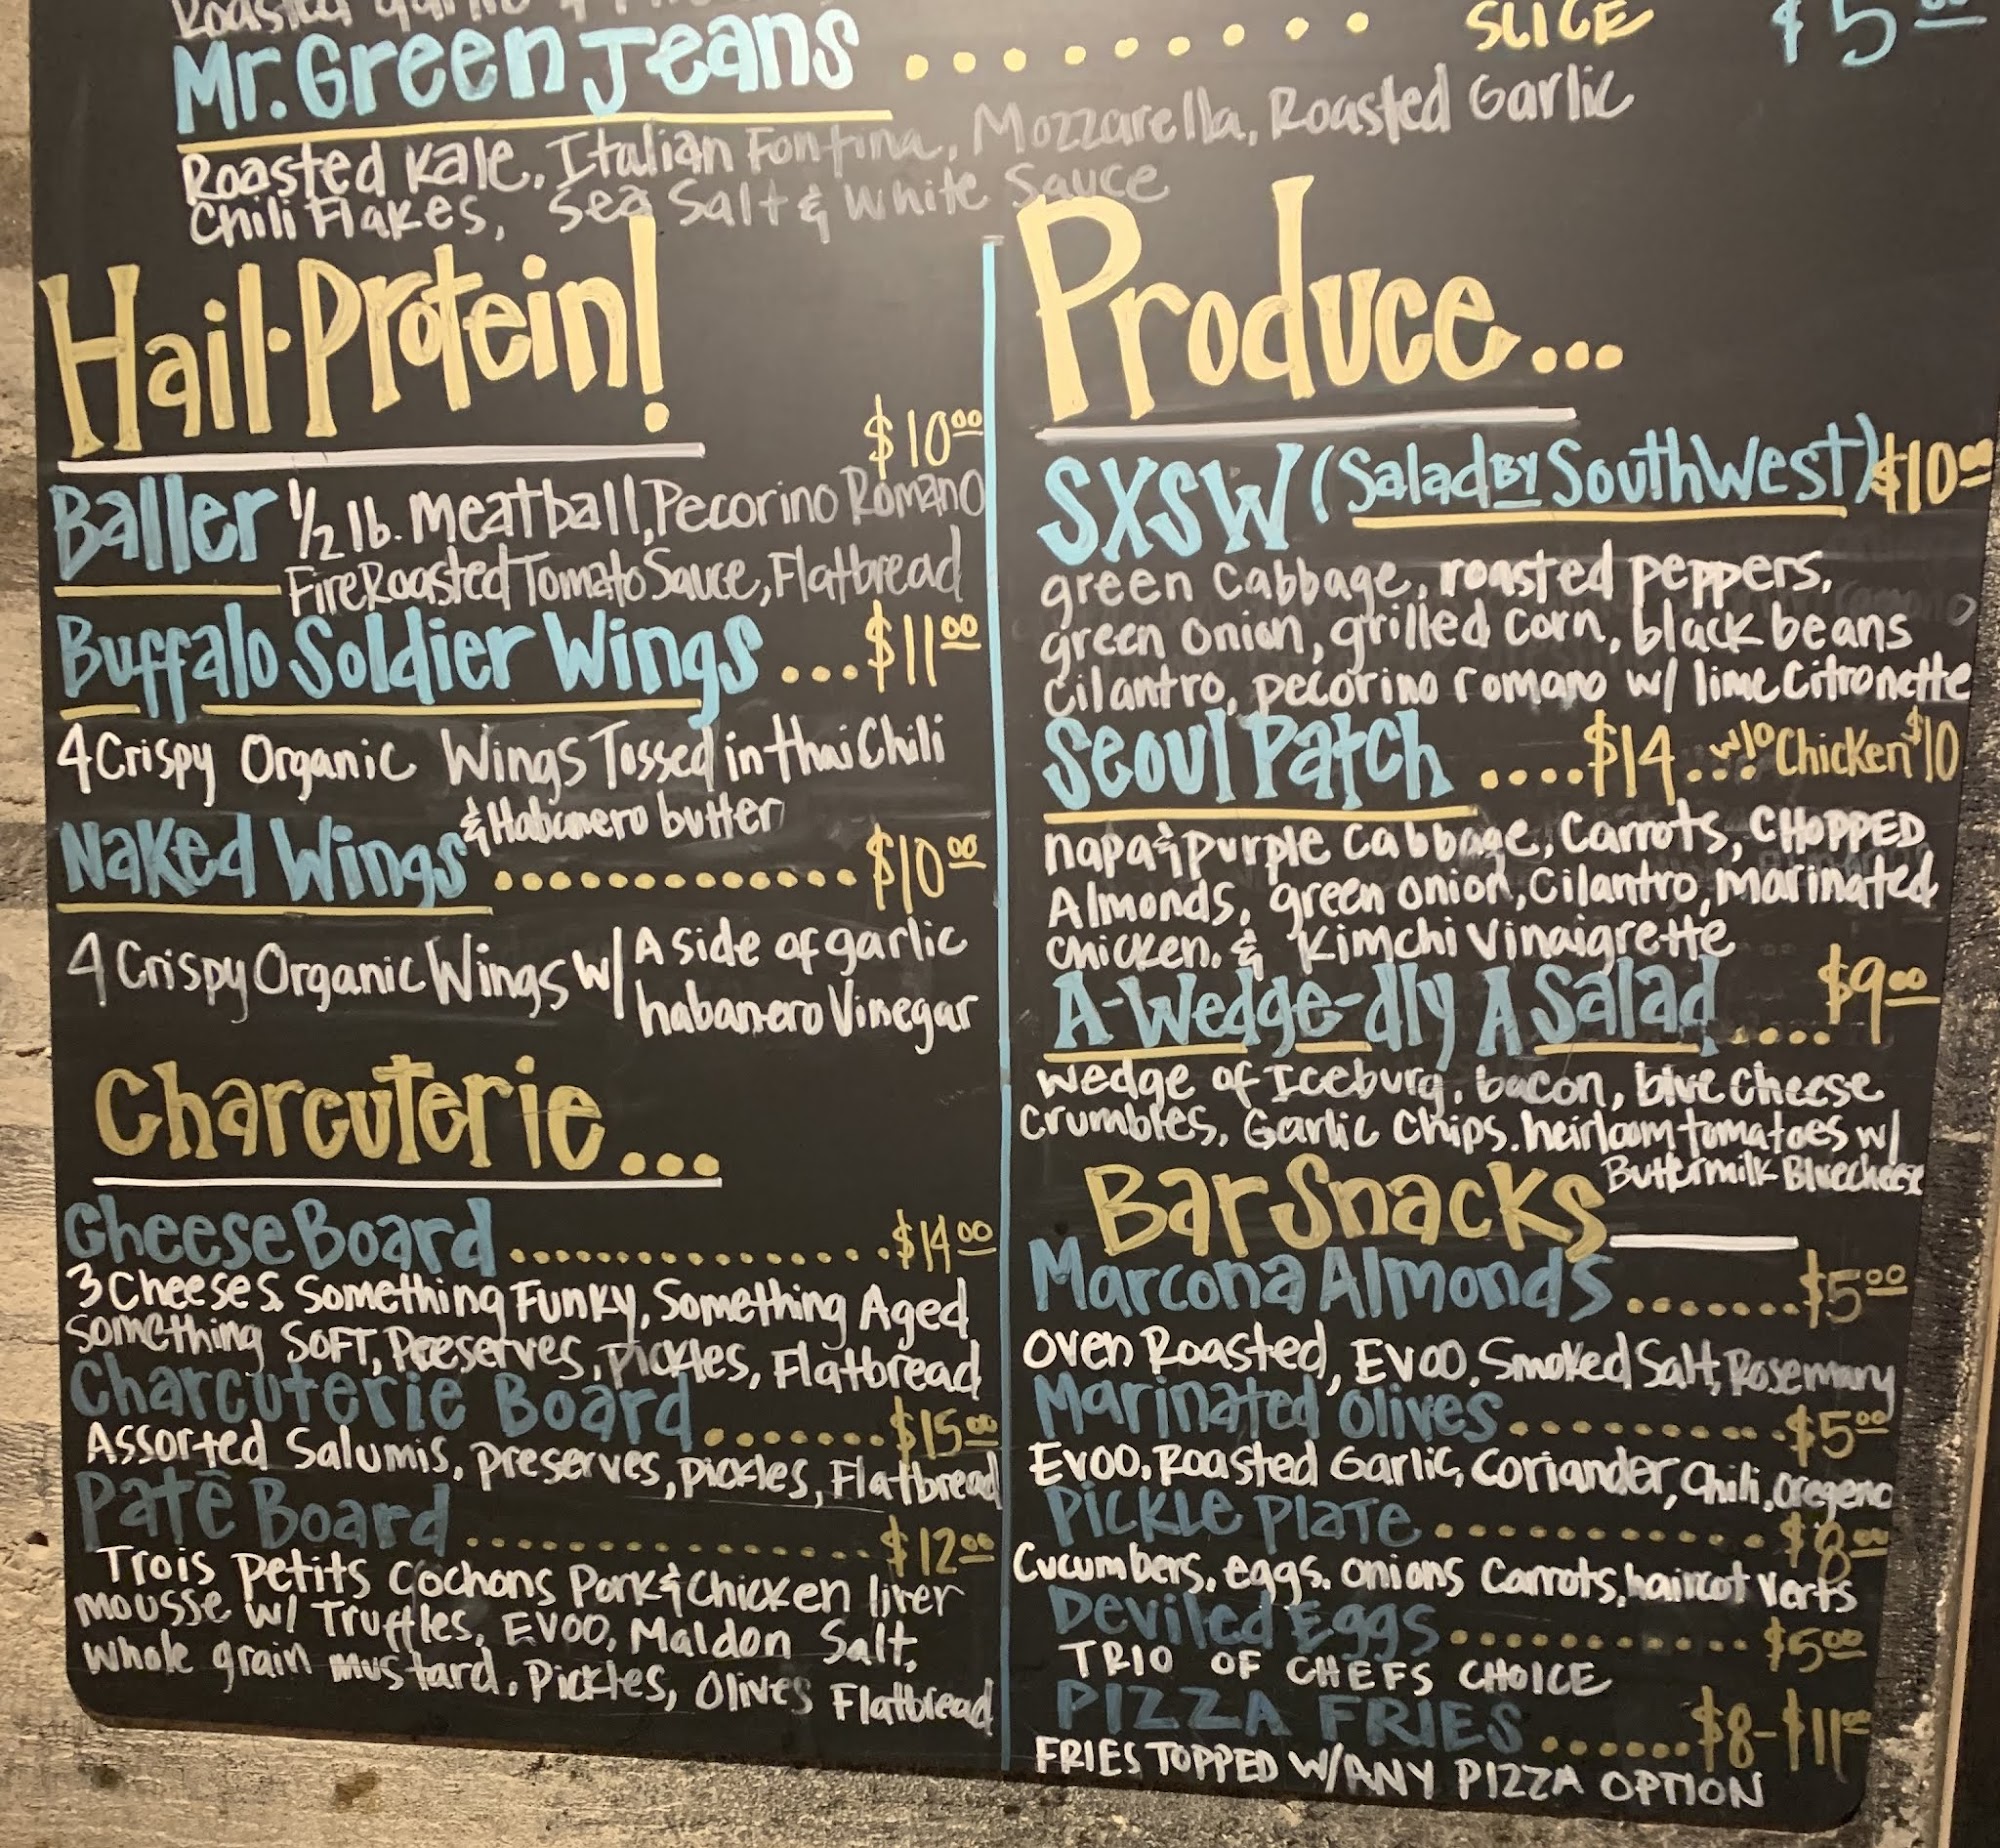 Roasted Garlic &
Mr. Green Jeans ......... SLICE $5.00
Roasted Kale, Italian Fontina, Mozzarella, Roasted Garlic
Chili Flakes, Sea Salt & White Sauce
Hail Protein!
$10.00
Baller 1/2 lb. Meatball, Pecorino Romano
Fire Roasted Tomato Sauce, Flatbread
Buffalo Soldier Wings ... $11.00
4 Crispy Organic Wings Tossed in thai Chili
& Habanero butter
Naked Wings ............. $10.00
4 Crispy Organic Wings w/ A side of garlic
habanero Vinegar
Charcuterie...
Cheese Board ................ $14.00
3 Cheeses Something Funky, Something Aged
something SOFT, Preserves, Pickles, Flatbread
Charcuterie Board ....... $15.00
Assorted Salumis, preserves, pickles, Flatbread
Patê Board .................. $12.00
Trois Petits Cochons Pork & Chicken liver
mousse w/ Truffles, EVOO, Maldon Salt,
whole grain mustard, Pickles, Olives Flatbread
Produce...
SXSW (Salad BY SouthWest) $10.00
green Cabbage, roasted peppers,
green onion, grilled corn, black beans
Cilantro, pecorino romano w/ lime Citronette
Seoul Patch ....$14... w/o Chicken $10
napa & purple Cabbage, Carrots, CHOPPED
Almonds, green onion, Cilantro, marinated
chicken, & Kimchi Vinaigrette
A-Wedge-dly A Salad .... $9.00
Wedge of Iceburg, bacon, blue cheese
crumbles, Garlic Chips, heirloom tomatoes w/
Buttermilk Bluecheese
Bar Snacks
Marcona Almonds ....... $5.00
Oven Roasted, EVOO, Smoked Salt, Rosemary
Marinated Olives ........... $5.00
EVOO, Roasted Garlic, Coriander, Chili, oregeno
Pickle Plate ............. $8.00
Cucumbers, eggs, onions Carrots, haircot verts
Deviled Eggs ............ $5.00
TRIO OF CHEFS CHOICE
PIZZA FRIES ...... $8-$11.00
FRIES TOPPED W/ANY PIZZA OPTION